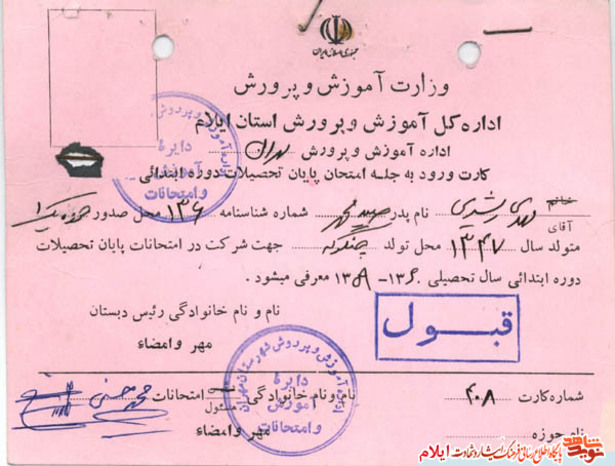 جمهوری اسلامی ایران
وزارت آموزش و پرورش
اداره کل آموزش و پرورش استان ایلام
اداره آموزش و پرورش مهران
کارت ورود به جلسه امتحان پایان تحصیلات دوره ابتدائی
خانم
آقای مهدی رشیدی نام پدر صید محمد شماره شناسنامه ۱۳۶ محل صدور حوزه یک
متولد سال ۱۳۴۷ محل تولد چنگوله جهت شرکت در امتحانات پایان تحصیلات
دوره ابتدائی سال تحصیلی ۱۳۶۰-۱۳۵۹ معرفی میشود.
نام و نام خانوادگی رئیس دبستان
مهر و امضاء
قبول
دایره
آموزش
و امتحانات
شماره کارت ۴۰۸
نام و نام خانوادگی مسئول امتحانات
نام حوزه
مهر و امضاء
اداره آموزش و پرورش شهرستان مهران
دایره
آموزش
و امتحانات
نوید شاهد
پایگاه اطلاع رسانی فرهنگ ایثار و شهادت ایلام